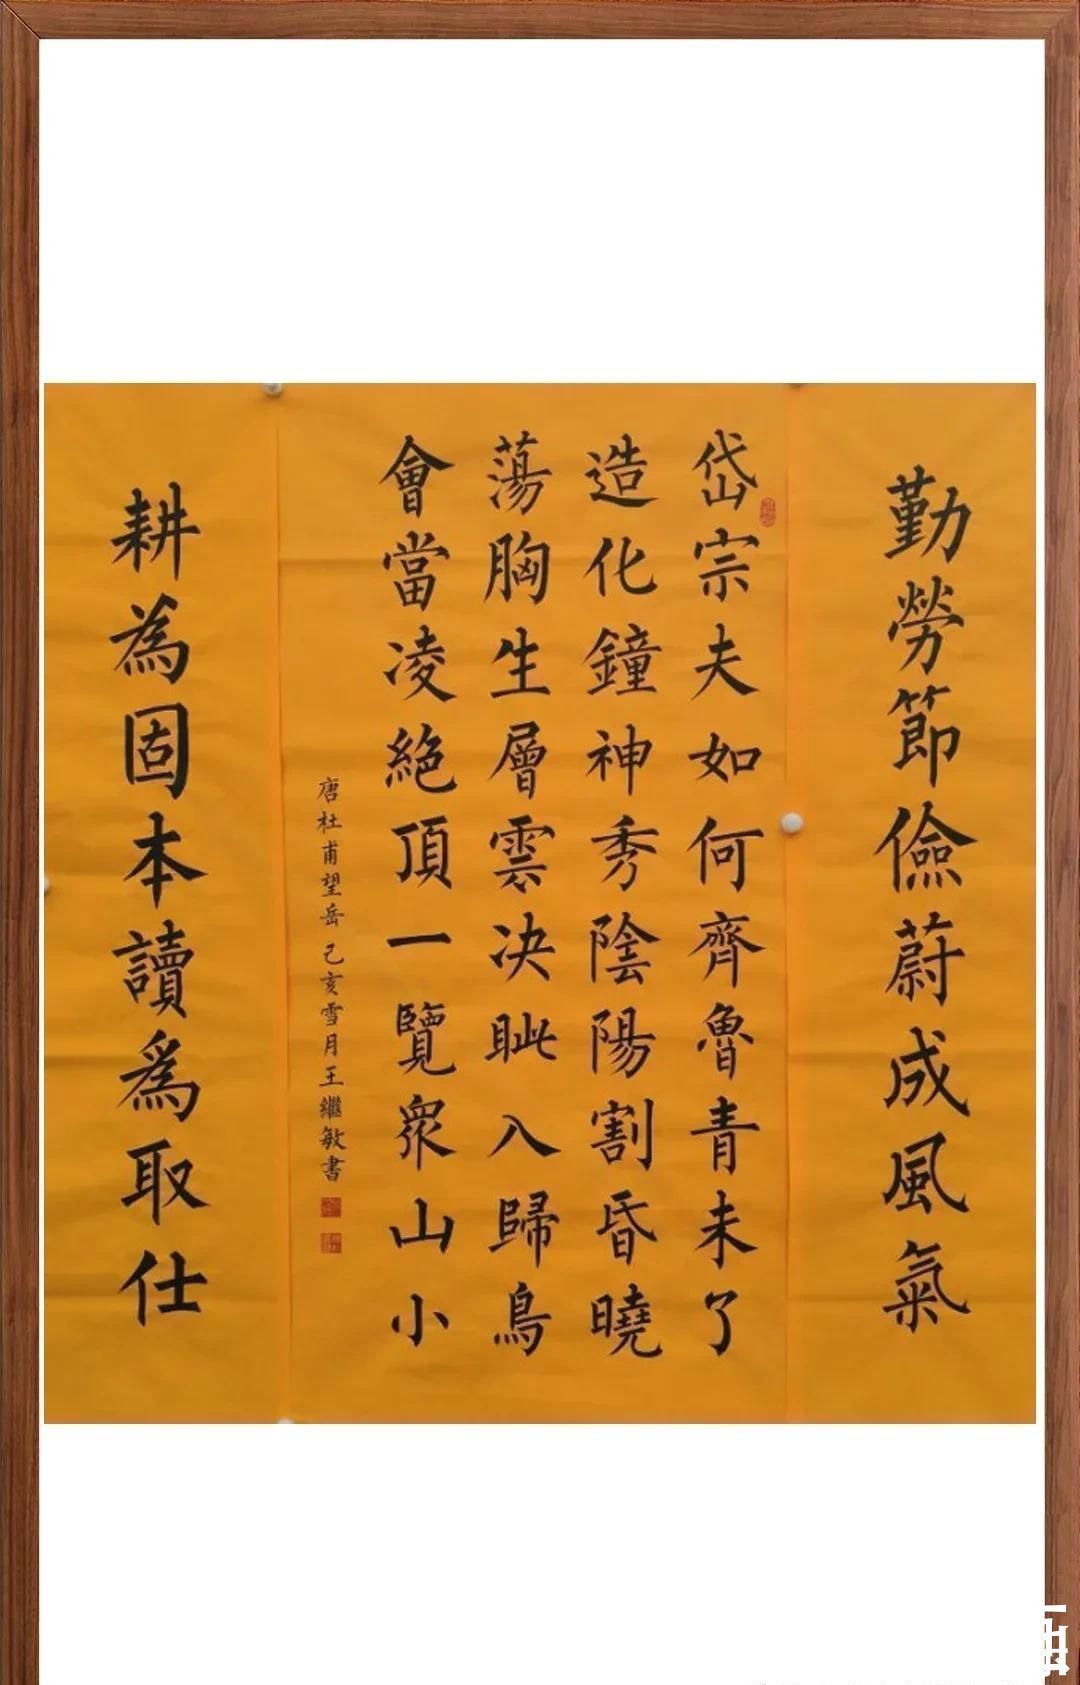 勤勞節儉蔚成風氣
岱宗夫如何齊魯青未了
造化鐘神秀陰陽割昏曉
蕩胸生層雲決眦入歸鳥
會當凌絕頂一覽眾山小
唐杜甫望岳己亥雪月王繼敏書
耕為固本讀為取仕